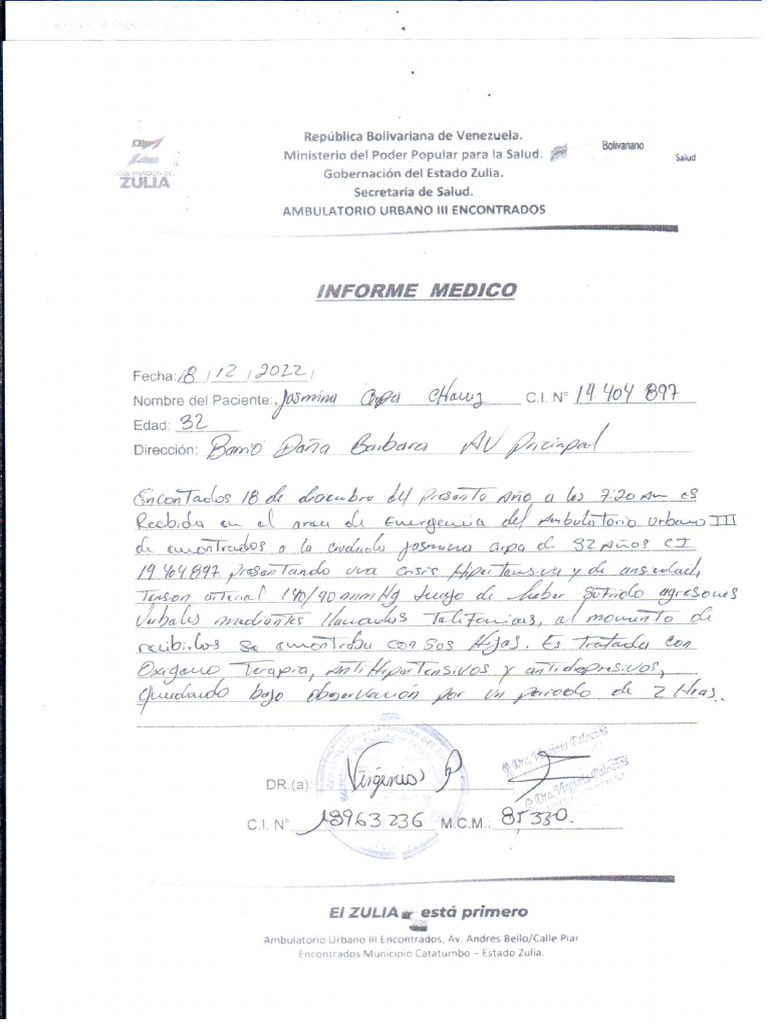 República Bolivariana de Venezuela.
Ministerio del Poder Popular para la Salud.
Bolivariano
Salud
Gobernación del Estado Zulia.
Secretaria de Salud.
AMBULATORIO URBANO III ENCONTRADOS
GOBERNACION DEL
ZULIA
INFORME MEDICO
Fecha: 18 / 12 / 2022 /
Nombre del Paciente: Jasmina C.I. N° 19.404 897
Edad: 32
Dirección: Barrio Doña Barbara AV Pricinpal
Encontados 18 de diciembre del presente Año a las 7:20 Am es
Recibida en el area de Emergencia del Ambulatorio Urbano III
de encontrados a la ciudada Jasmina de 32 Años CI
19.404 897 presentando una crisis Hipertensiva y de ansiedad,
Tension arterial 190/90 mmHg luego de haber sufrido agresiones
Verbales mediantes llamadas Telefonicas, al momento de
recibirlos se encontraba con sos Hijas. Es tratada con
Oxigeno Terapia, AntiHipertensivos y antidepresivos,
Quedando bajo observación por un periodo de 2 Hras.
DR.(a): Virginia P.
Dra. Virginia Palacios
Dra. Virginia Palacios
C.I. N° 18963236 M.C.M.. 85330.
El ZULIA está primero
Ambulatorio Urbano III Encontrados, Av. Andrés Bello/Calle Piar
Encontrados Municipio Catatumbo – Estado Zulia.